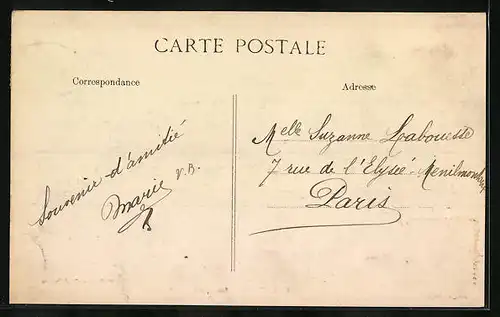 CARTE POSTALE
Correspondance
Adresse
Souvenir d'amitié
Marie V.B.
Melle Suzanne Laboueste
7 rue de l'Elysée-Ménilmontant
Paris